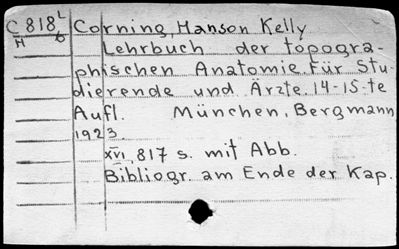 C 818 L Corning, Hanson Kelly
H 6 Lehrbuch der topogra-
phischen Anatomie. Für Stu-
dierende und Ärzte. 14-15-te
Aufl. München, Bergmann,
1923.
XVI, 817 s. mit Abb.
Bibliogr. am Ende der Kap.